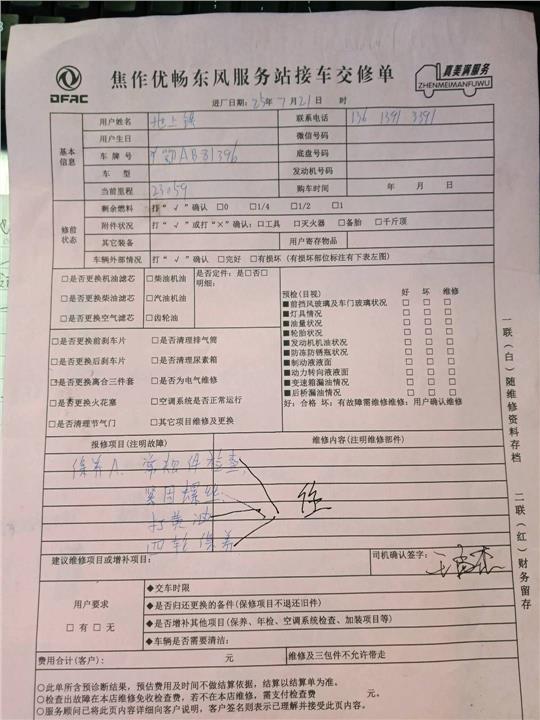 DFAC
焦作优畅东风服务站接车交修单
真美满服务
ZHENMEIMANFUWU
进厂日期: 25年 7月21日 时
基本信息
用户姓名 联系电话 136 1391 3391
用户生日 微信号码
车牌号 AB81396 底盘号码
车型 发动机号码
当前里程 23059 购车时间 年 月 日
修前状态
剩余燃料 打“√”确认 □0 □1/4 □1/2 □1
附件状况 打“√”或打“×”确认:□工具 □灭火器 □备胎 □千斤顶
其它装备 用户寄存物品
车辆外部情况 打“√”确认 □完好 □有损坏(有损坏部位标注有下表左图)
□是否更换机油滤芯 □柴油机油 是否定件:是□否□
明细:
□是否更换柴油滤芯 □汽油机油
□是否更换空气滤芯 □齿轮油
□是否更换前刹车片 □是否清理排气筒
□是否更换后刹车片 □是否清理尿素箱
□是否更换离合三件套 □是否为电气维修
□是否更换火花塞 □空调系统是否正常运行
□是否清理节气门 □其它项目维修及更换
预检(目视) 好 坏 维修
■前挡风玻璃及车门玻璃状况 □ □ □
■灯具情况 □ □ □
■油量状况 □ □ □
■轮胎状况 □ □ □
■发动机机油状况 □ □ □
■防冻防锈瓶状况 □ □ □
■制动液液面 □ □ □
■动力转向液液面 □ □ □
■变速箱漏油情况 □ □ □
■后桥漏油情况 □ □ □
好:合格 坏:有故障需维修维修:用户确认维修
报修项目(注明故障) 维修内容(注明维修部件)
保养A. 常规件检查
紧固螺丝
打黄油
四轮保养
建议维修项目或增补项目: 司机确认签字:
用户要求
□有 □无
◆交车时限
◆是否归还更换的备件(保修项目不退还旧件)
◆是否增补其他项目(保养、年检、空调系统检查、加装项目等)
◆车辆是否需要清洁:
费用合计(客户): 元 维修及三包件不允许带走
○此单所含预诊断结果,预估费用及时间不做结算依据,结算以结算单为准。
○检查出故障在本店维修免收检查费,若不在本店维修,需支付检查费 元。
○服务顾问已将此页内容详细向客户说明,客户签名则表示已理解并接受此页内容。
一联(白)随维修资料存档 二联(红)财务留存